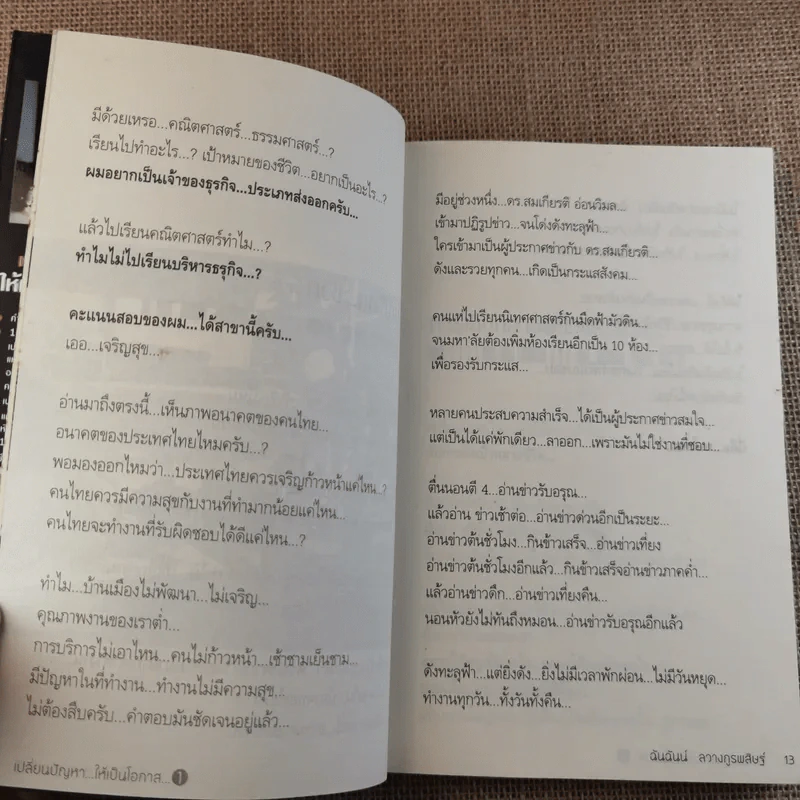 มีด้วยเหรอ...คณิตศาสตร์...ธรรมศาสตร์...?
เรียนไปทำอะไร...? เป้าหมายของชีวิต...อยากเป็นอะไร...?
ผมอยากเป็นเจ้าของธุรกิจ...ประเภทส่งออกครับ...
แล้วไปเรียนคณิตศาสตร์ทำไม...?
ทำไมไม่ไปเรียนบริหารธรุกิจ...?
คะแนนสอบของผม...ได้สาขานี้ครับ...
เออ...เจริญสุข...
อ่านมาถึงตรงนี้...เห็นภาพอนาคตของคนไทย...
อนาคตของประเทศไทยไหมครับ...?
พอมองออกไหมว่า...ประเทศไทยควรเจริญก้าวหน้าแค่ไหน...?
คนไทยควรมีความสุขกับงานที่ทำมากน้อยแค่ไหน...
คนไทยจะทำงานที่รับผิดชอบได้ดีแค่ไหน...?
ทำไม...บ้านเมืองไม่พัฒนา...ไม่เจริญ...
คุณภาพงานของเราต่ำ...
การบริการไม่เอาไหน...คนไม่ก้าวหน้า...เช้าชามเย็นชาม...
มีปัญหาในที่ทำงาน...ทำงานไม่มีความสุข...
ไม่ต้องสืบครับ...คำตอบมันชัดเจนอยู่แล้ว...
เปลี่ยนปัญหา...ให้เป็นโอกาส... 1
มีอยู่ช่วงหนึ่ง...ดร.สมเกียรติ อ่อนวิมล...
เข้ามาปฏิรูปข่าว...จนโด่งดังทะลุฟ้า...
ใครเข้ามาเป็นผู้ประกาศข่าวกับ ดร.สมเกียรติ...
ดังและรวยทุกคน...เกิดเป็นกระแสสังคม...
คนแห่ไปเรียนนิเทศศาสตร์กันมืดฟ้ามัวดิน...
จนมหา'ลัยต้องเพิ่มห้องเรียนอีกเป็น 10 ห้อง...
เพื่อรองรับกระแส...
หลายคนประสบความสำเร็จ...ได้เป็นผู้ประกาศข่าวสมใจ...
แต่เป็นได้แค่พักเดียว...ลาออก...เพราะมันไม่ใช่งานที่ชอบ...
ตื่นนอนตี 4...อ่านข่าวรับอรุณ...
แล้วอ่าน ข่าวเช้าต่อ...อ่านข่าวด่วนอีกเป็นระยะ...
อ่านข่าวต้นชั่วโมง...กินข้าวเสร็จ...อ่านข่าวเที่ยง
อ่านข่าวต้นชั่วโมงอีกแล้ว...กินข้าวเสร็จอ่านข่าวภาคค่ำ...
แล้วอ่านข่าวดึก...อ่านข่าวเที่ยงคืน...
นอนหัวยังไม่ทันถึงหมอน...อ่านข่าวรับอรุณอีกแล้ว
ดังทะลุฟ้า...แต่ยิ่งดัง...ยิ่งไม่มีเวลาพักผ่อน...ไม่มีวันหยุด...
ทำงานทุกวัน...ทั้งวันทั้งคืน...
ฉันฉันน์ ลวางกูรพสิษฐ์ 13